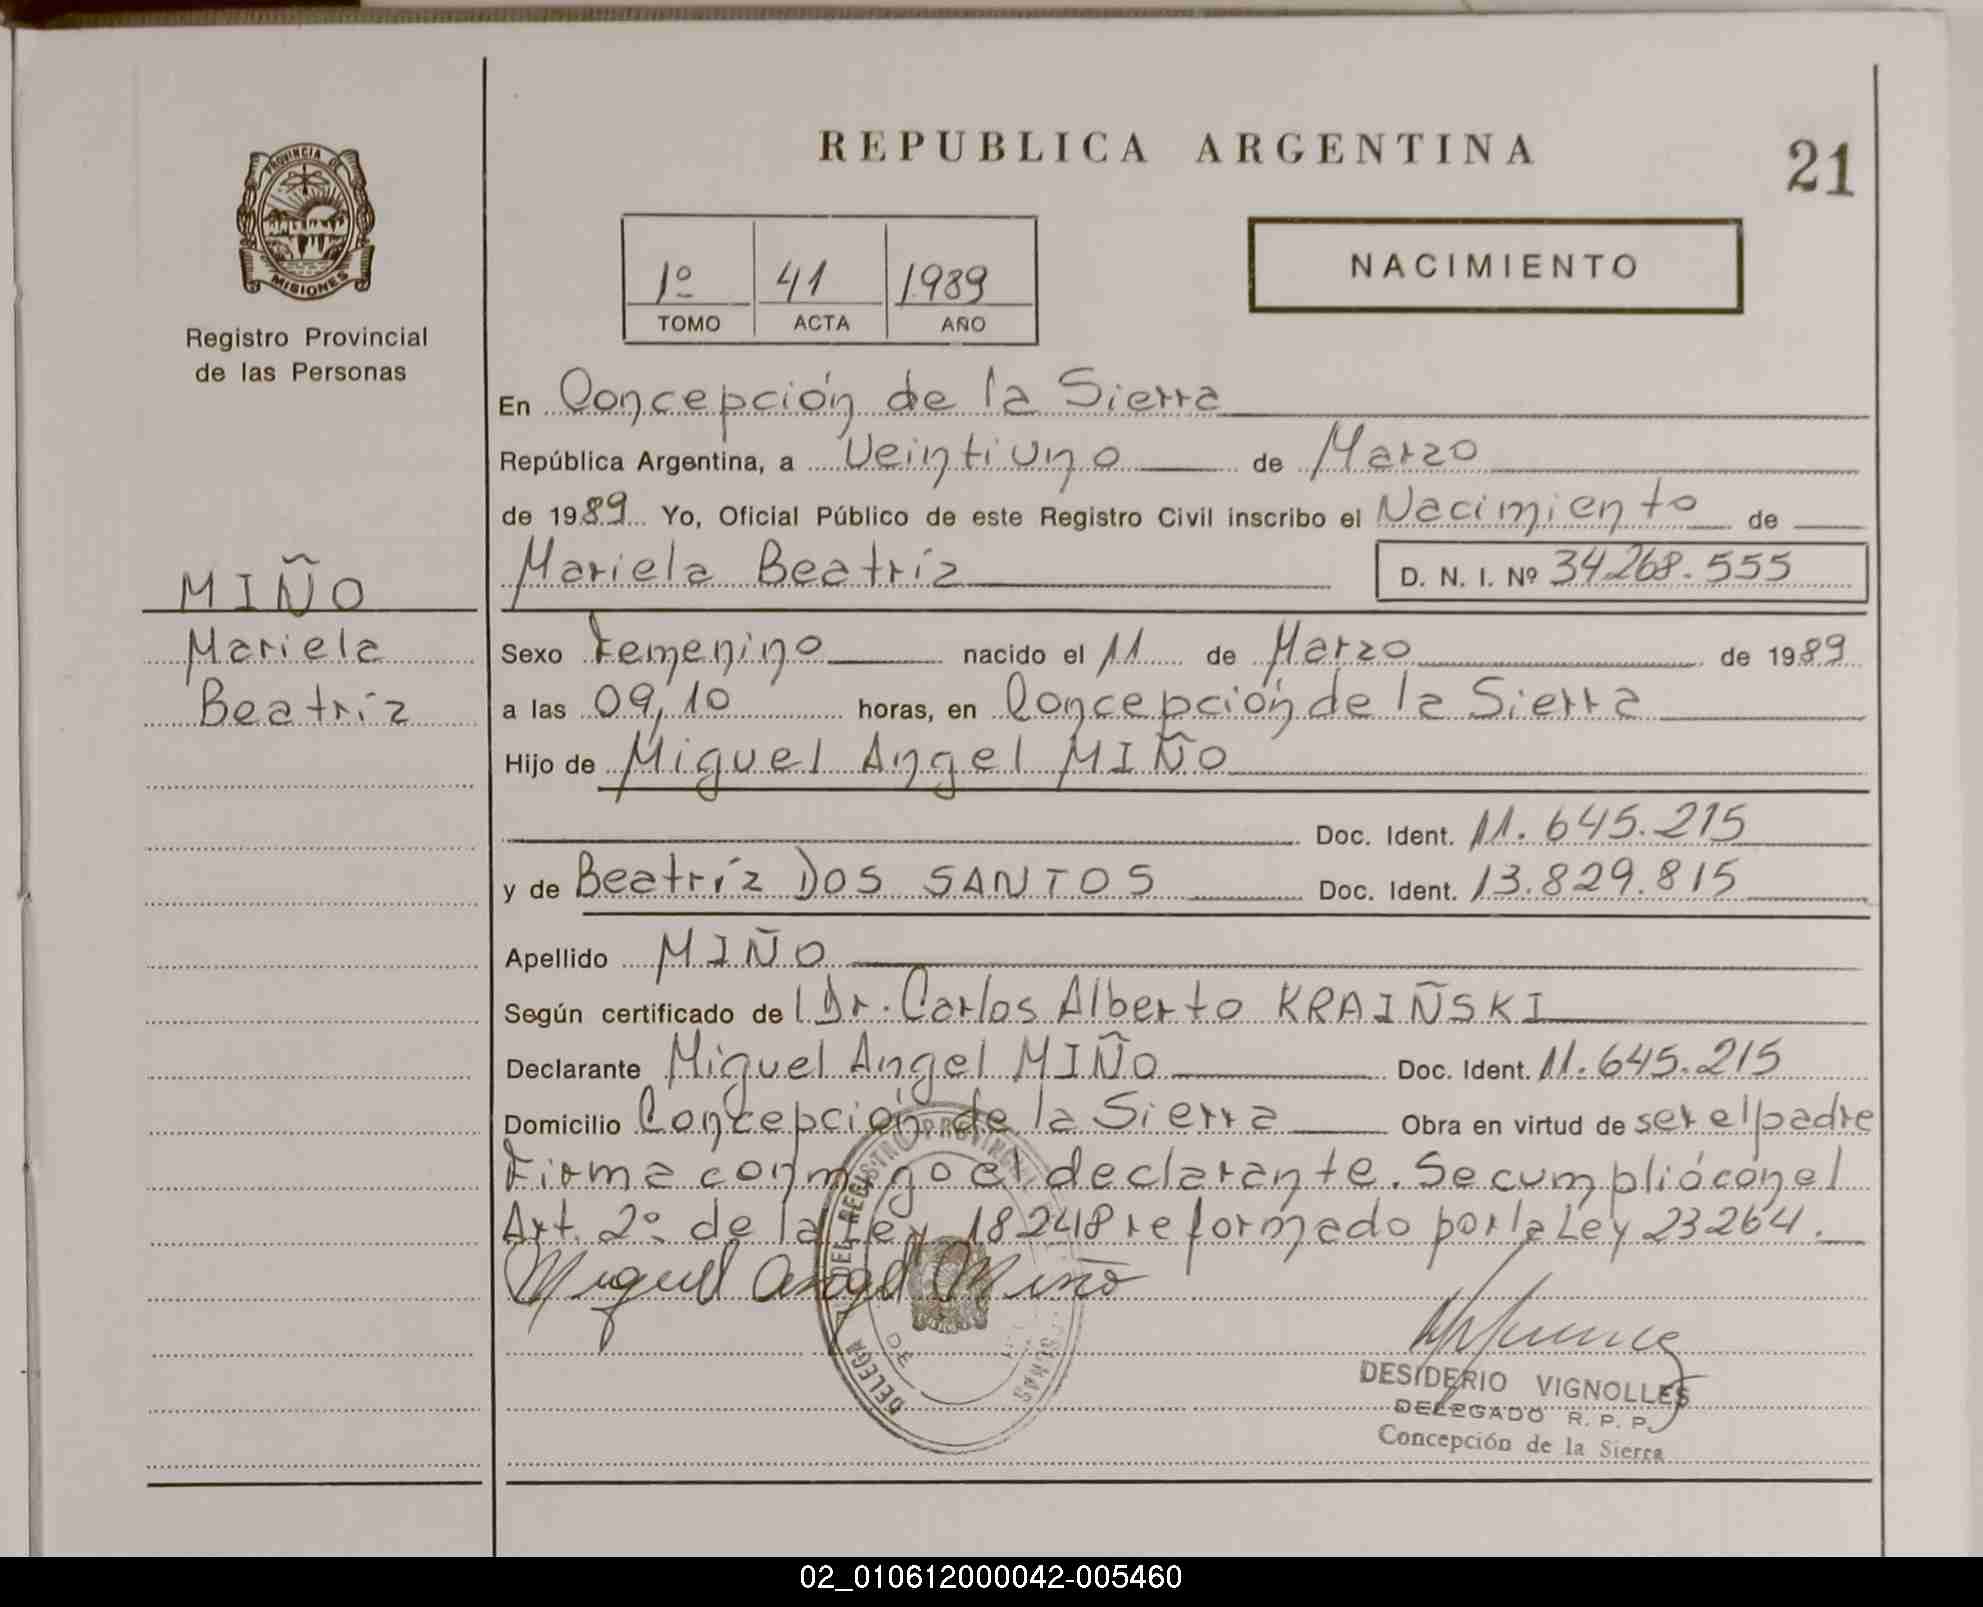 REPUBLICA ARGENTINA
21
PROVINCIA DE
MISIONES
Registro Provincial
de las Personas
1º 41 1989
TOMO ACTA AÑO
NACIMIENTO
En Concepción de la Sierra
República Argentina, a Veintiuno de Marzo
de 1989 Yo, Oficial Público de este Registro Civil inscribo el Nacimiento de
Mariela Beatríz D. N. I. Nº 34268.555
MIÑO
Mariela
Beatríz
Sexo Femenino nacido el 11 de Marzo de 1989
a las 09,10 horas, en Concepción de la Sierra
Hijo de Miguel Angel MIÑO
Doc. Ident. 11.645.215
y de Beatríz DOS SANTOS Doc. Ident. 13.829.815
Apellido MIÑO
Según certificado de l Dr. Carlos Alberto KRAIÑSKI
Declarante Miguel Angel MIÑO Doc. Ident. 11.645.215
Domicilio Concepción de la Sierra Obra en virtud de ser el padre
Firma conmigo el declarante. Se cumplió con el
Art. 2º de la Ley 18248 reformado por la Ley 23264.
Miguel Angel Miño
DESIDERIO VIGNOLLES
DELEGADO R. P. P.
Concepción de la Sierra
02_010612000042-005460